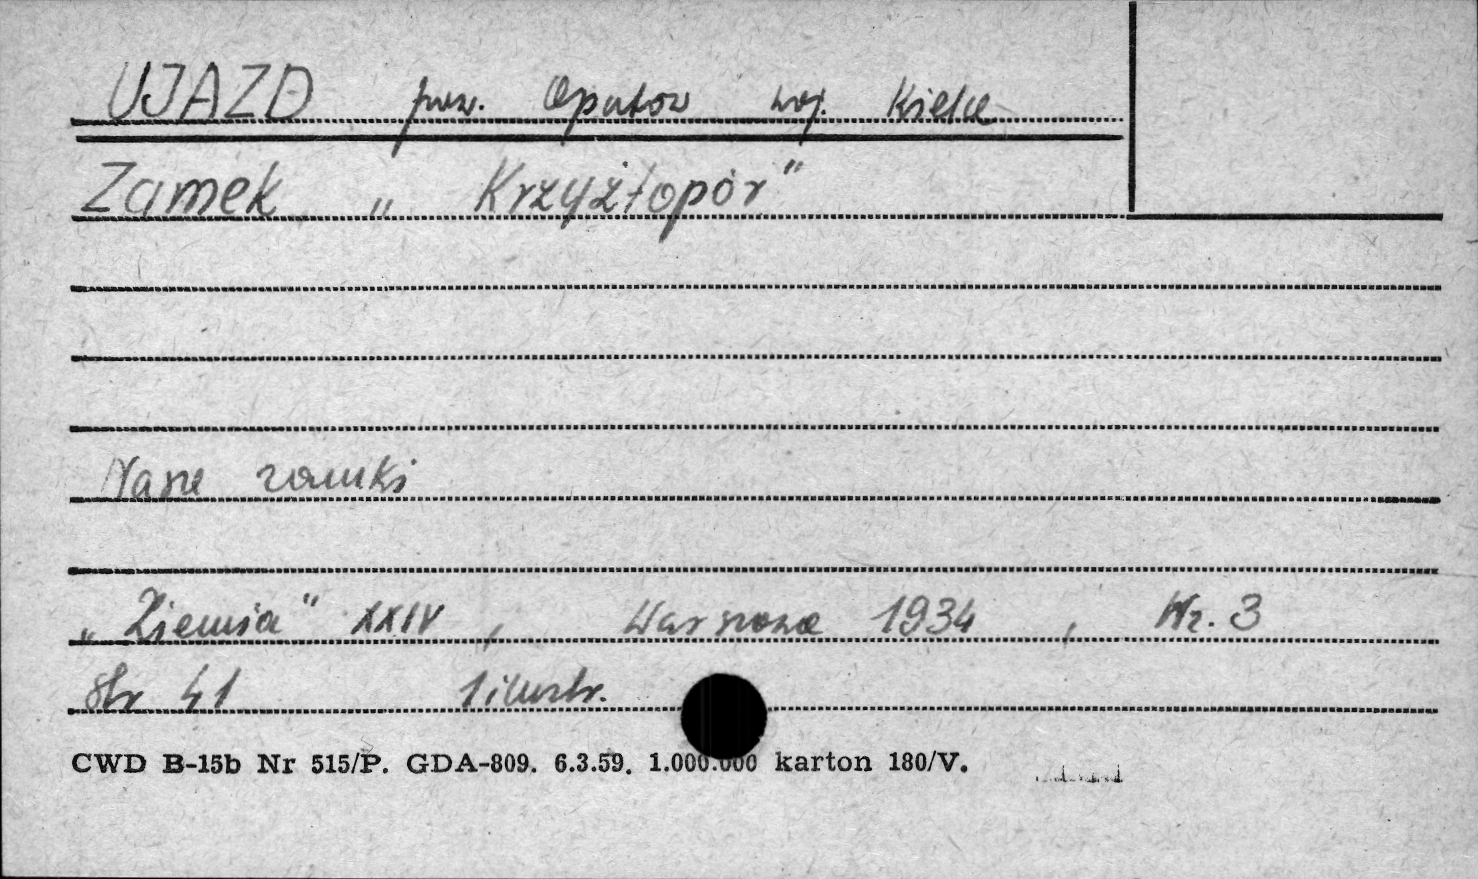 UJAZD pow. Opatów woj. Kielce
Zamek „Krzyżtopór"
Nasze zamki
„Ziemia" XXIV, Warszawa 1934, Nr. 3
Str 41 1 ilustr.
CWD B-15b Nr 515/P. GDA-809. 6.3.59. 1.000.000 karton 180/V.